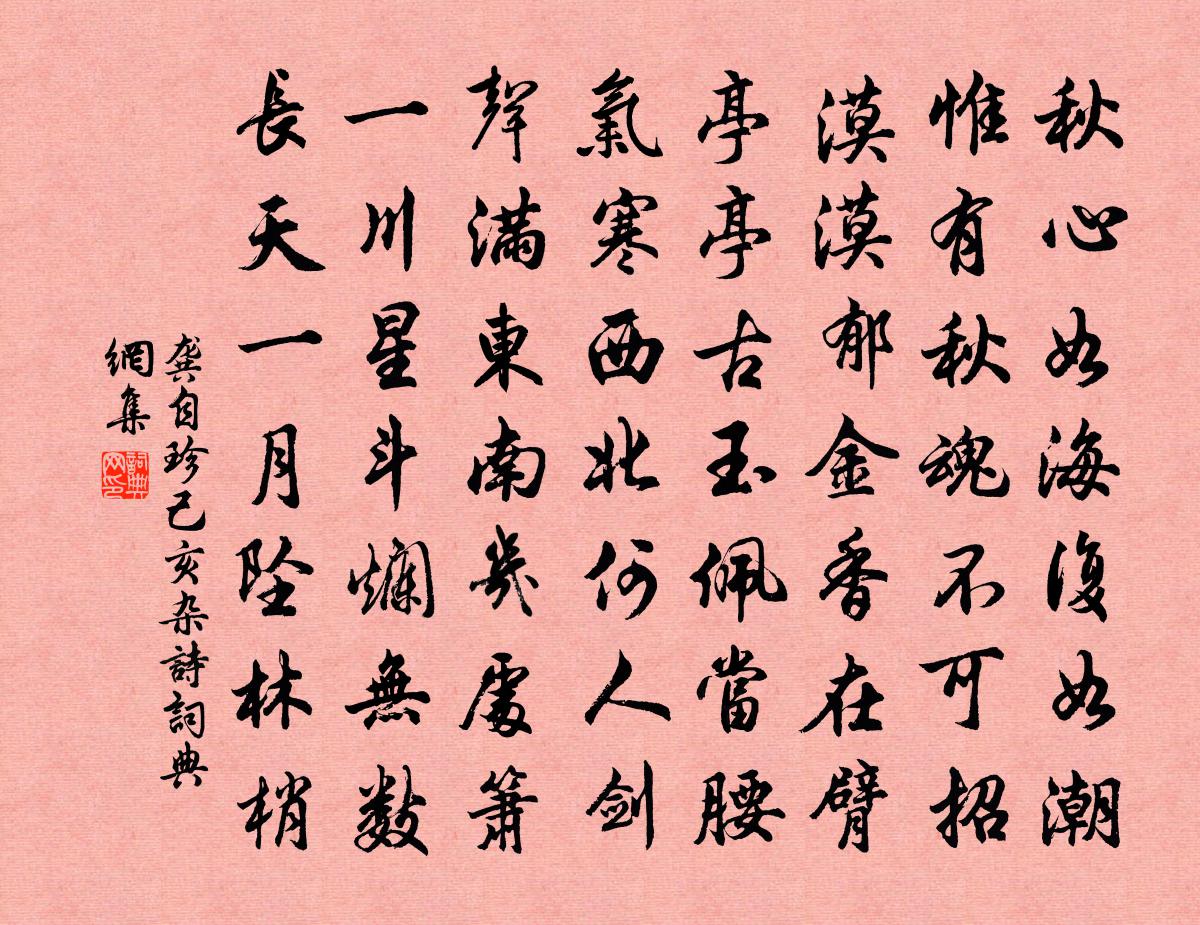 秋心如海復如潮
惟有秋魂不可招
漠漠郁金香在臂
亭亭古玉佩當腰
氣寒西北何人剑
聲滿東南幾處簫
一川星斗爛無數
長天一月坠林梢
龔自珍己亥杂詩詞典
網集
詞典网印